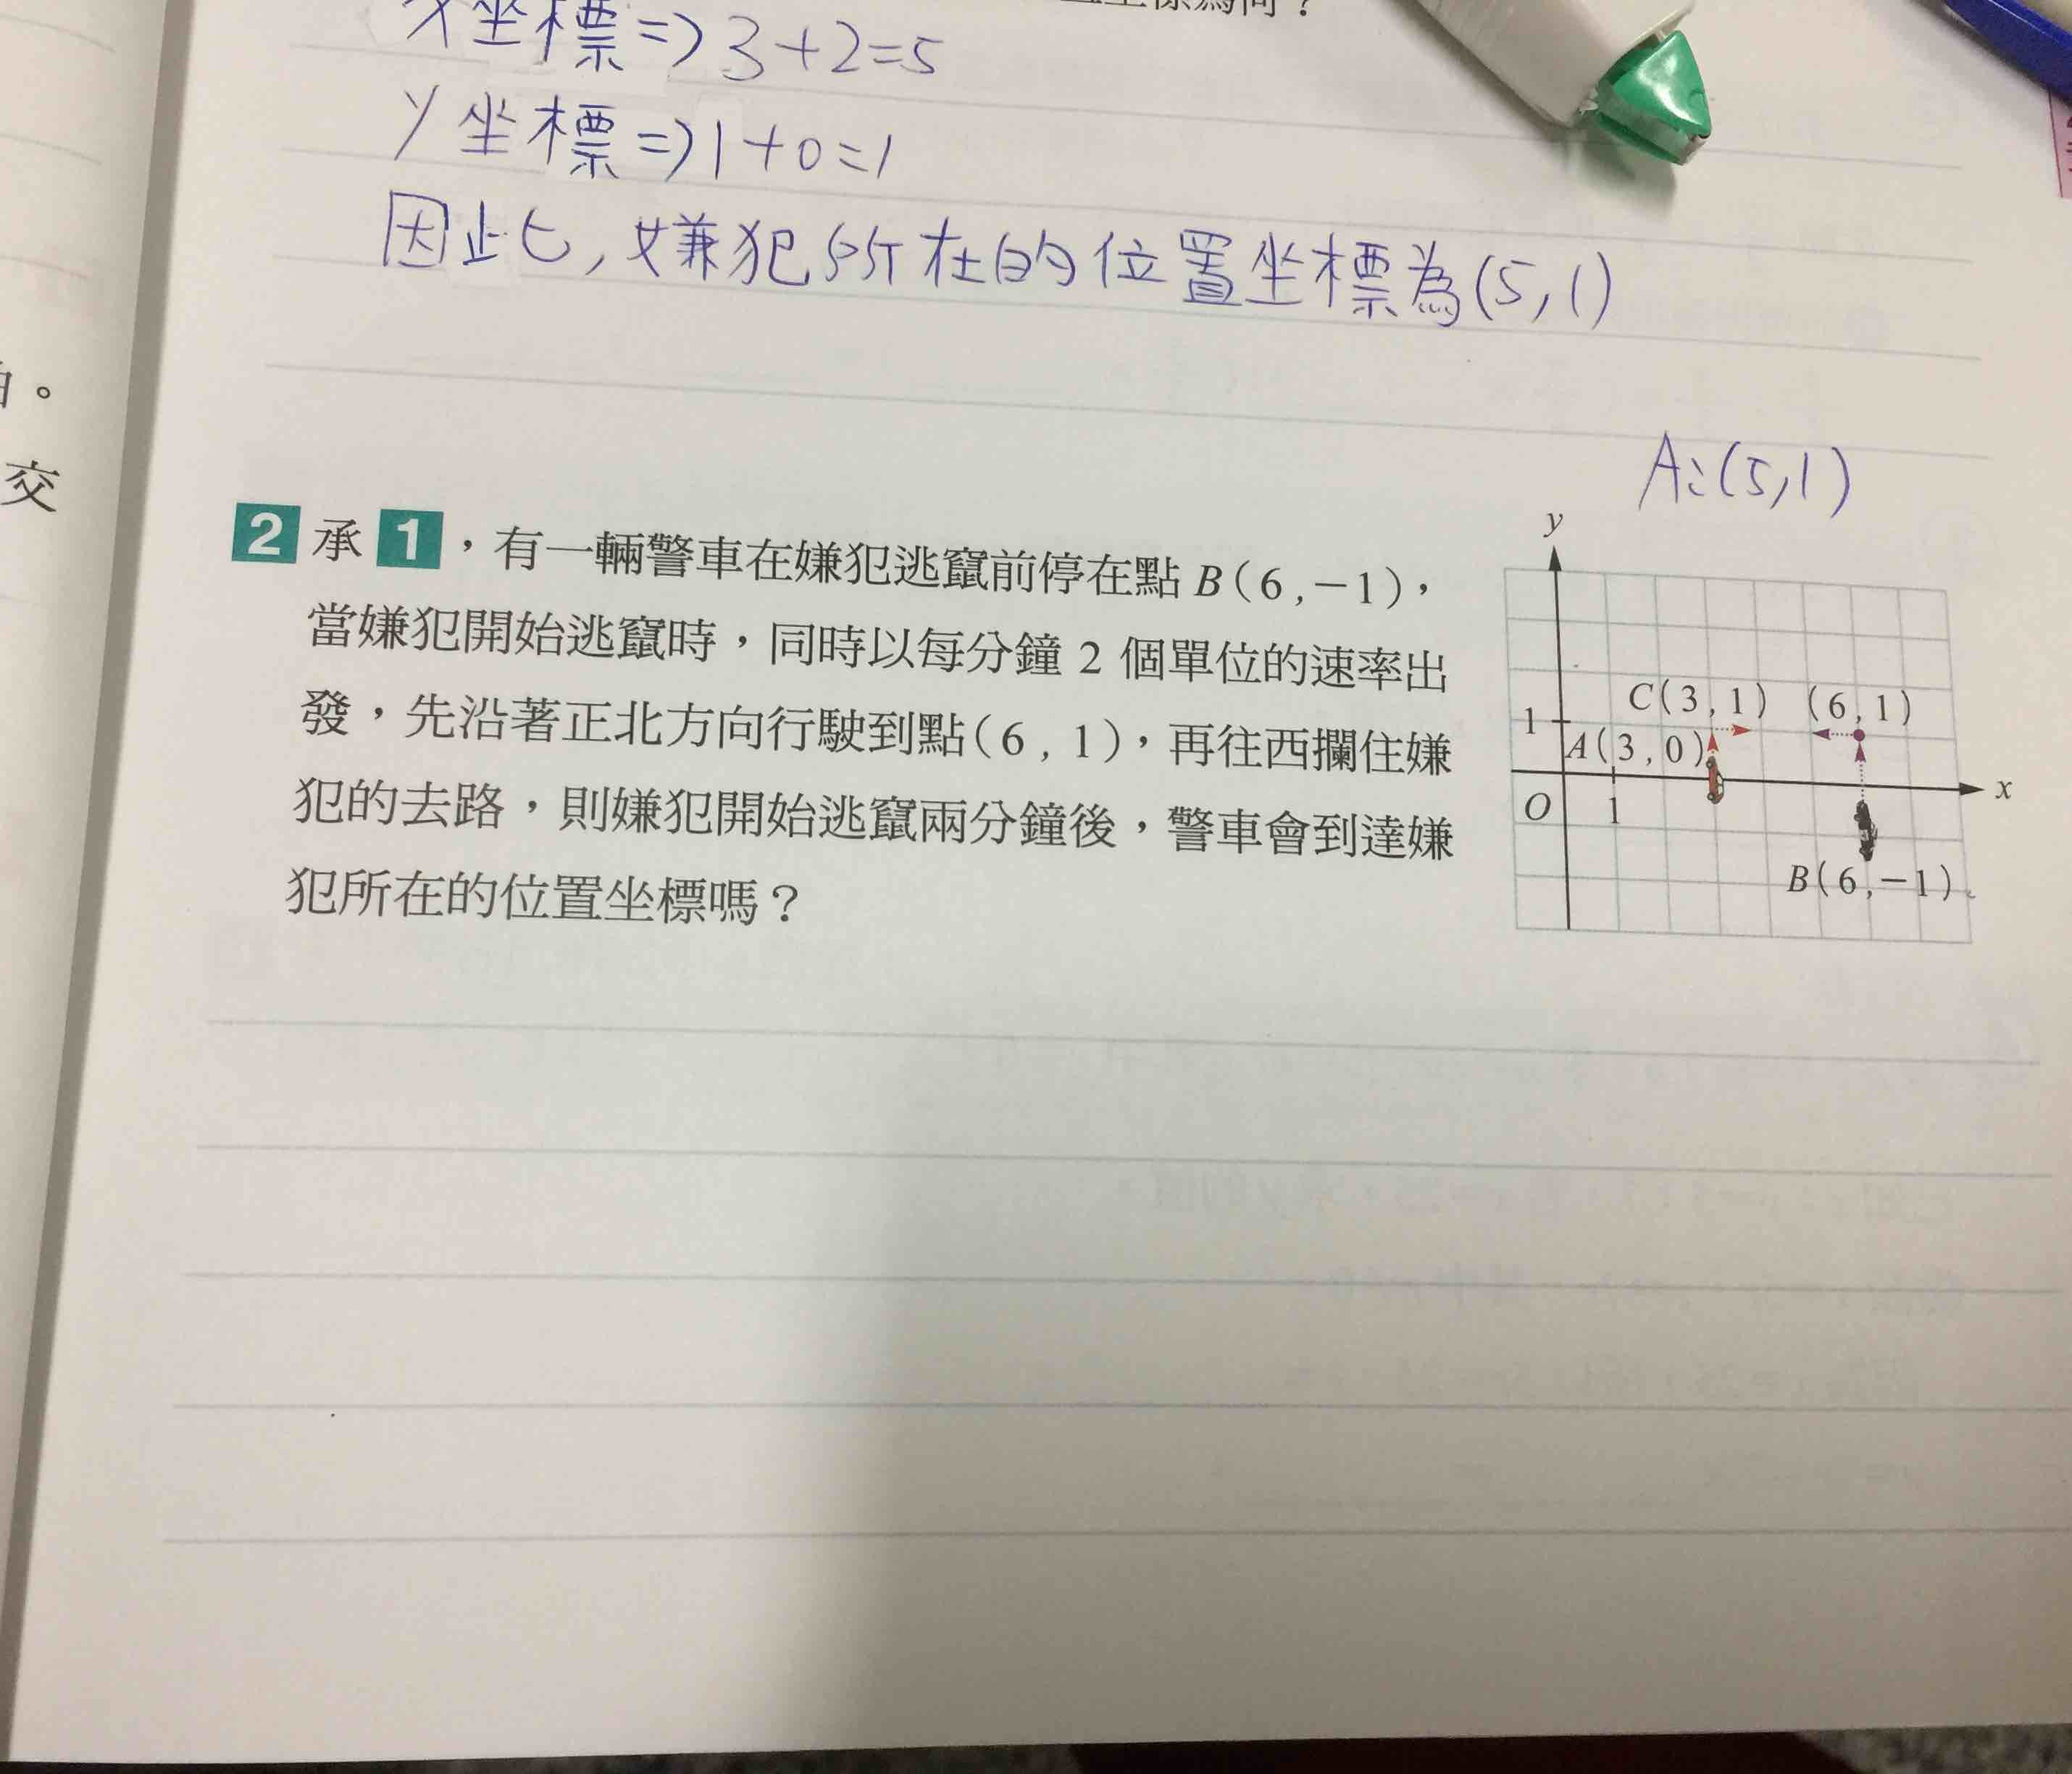 坐標=>3+2=5
y坐標=>1+0=1
因此,嫌犯所在的位置坐標為(5,1)
A:(5,1)
交
2 承 1，有一輛警車在嫌犯逃竄前停在點 B(6,-1)，
當嫌犯開始逃竄時，同時以每分鐘 2 個單位的速率出
發，先沿著正北方向行駛到點(6,1)，再往西攔住嫌
犯的去路，則嫌犯開始逃竄兩分鐘後，警車會到達嫌
犯所在的位置坐標嗎？
y
C(3,1) (6,1)
1
A(3,0)
x
O 1
B(6,-1)